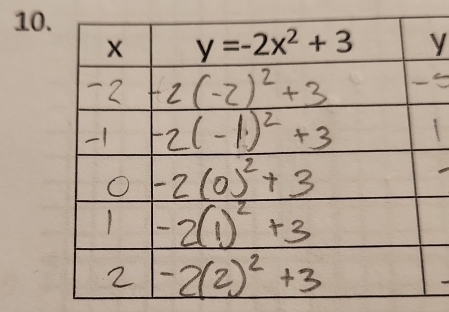 10.
x y =-2x² + 3 y
-2 -2(-2)² +3 -5
-1 -2(-1)² +3 1
0 -2(0)² + 3
1 -2(1)² +3
2 -2(2)² +3